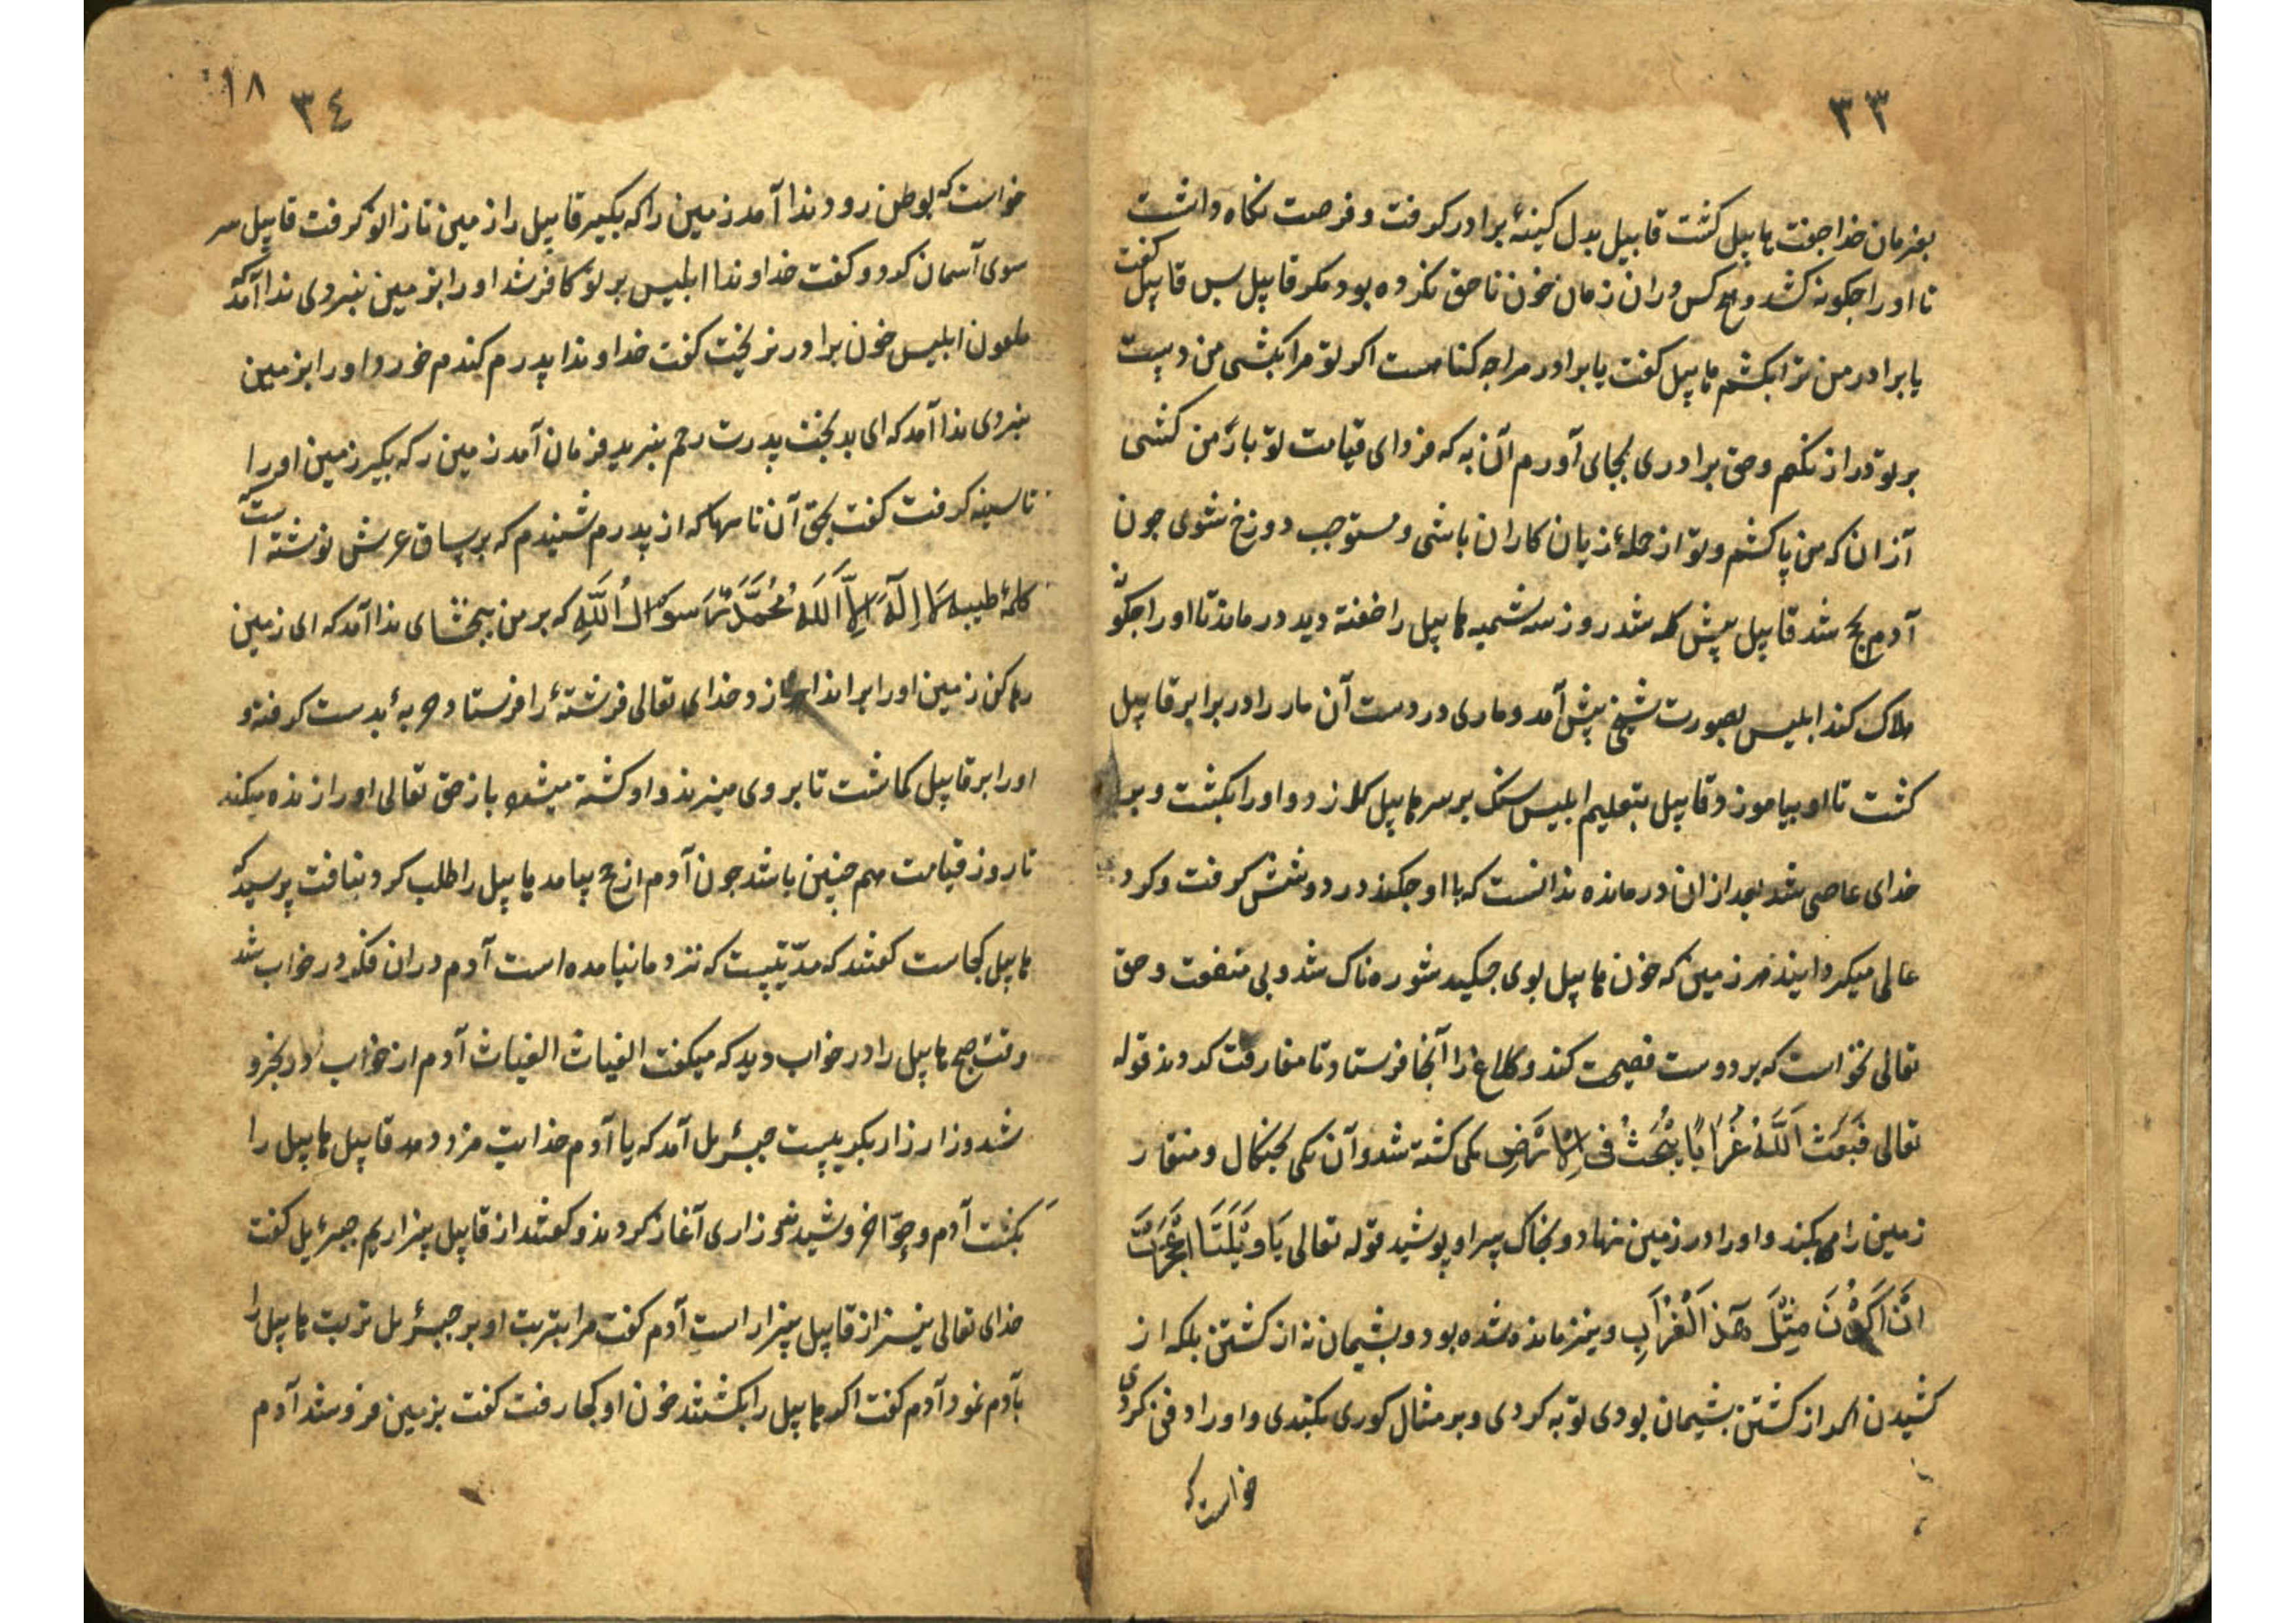 ٣٣
بفرمان خدا جفت هابیل کشت قابیل بدل کینهٔ برادر کرفت و فرصت نکاه داشت
تا اورا جکونه کشد و هیچ کس دران زمان خون ناحق نکرده بود مکر قابیل بس قابیل کفت
یا برادر من ترا بکشم هابیل کفت یا برادر مرا جه کناهست اکر تو مرا بکشی من دست
بر تو دراز نکنم و حق برادری بجای آورم آن به که فردای قیامت تو بار من کشی
آزان که من پاکشم و تو از جملهٔ زیان کاران باشی و مستوجب دوزخ شوی جون
آدم بحج شد قابیل پیش کله شد روز سه شنبه هابیل را خفته دید درماند تا اورا جکونه
هلاک کند ابلیس بصورت شیخی پیش آمد و ماری در دست آن مار را در برابر قابیل
کشت تا او بیاموزد قابیل بتعلیم ابلیس سنک بر سر هابیل کلان زد و اورا بکشت و بر
خدای عاصی شد بعد ازان درمانده ندانست که با او جکند در دوشش کرفت و کرد
عالم میکردانید هر زمین که خون هابیل بوی جکید شوره ناک شد و بی منفعت و حق
تعالی نخواست که بر دوست فضیحت کند دو کلاغ را آنجا فرستاد تا مفارقت کردند قوله
تعالی فَبَعَثَ اَللَّهُ غُرَابًا یَبْحَثُ فِی الْاَرْضِ یکی کشته شد و آن یکی بجنکال و منقار
زمین را میکند و اورا در زمین نهاد و بخاک سر او پوشید قوله تعالی یَا وَیْلَتَا اَعَجَزْتُ
اَنْ اَکُوْنَ مِثْلَ هَذَ اَلْغُرَابِ و نیز مانده شده بود و بشیمان نه از کشتن بلکه از
کشیدن اکر از کشتن بشیمان بودی توبه کردی و بر مثال کوری بکندی و اورا دفن کردی
خواست که
١٨
٣٤
خواست که بوطن رود ندا آمد زمین را که بکیر قابیل را زمین تا زانو کرفت قابیل سر
سوی آسمان کرد و کفت خداوندا ابلیس بر تو کافر شد اورا بزمین نبردی ندا آمد که
ملعون ابلیس خون برادر نریخت کفت خداوندا پدرم کندم خورد اورا بزمین
نبردی ندا آمد که ای بدبخت پدرت رحم نبرید فرمان آمد زمین رکه بکیر زمین اورا
تا سینه کرفت کفت بحق آن نامها که از پدرم شنیدم که بر ساق عرش نوشته است که
کلمهٔ طیبه لَا اِلَهَ اِلَّا اَللَهُ مُحَمَّدٌ رَسوُلُ اُللَّهِ که بر من ببخشای ندا آمد که ای زمین
رها کن زمین اورا برانداخت و خدای تعالی فرشتهٔ را فرستاد حربهٔ بدست کرفته و
اورا بر قابیل کماشت تا بر وی میزند و او کشته میشود باز حق تعالی اورا زنده میکند
تا روز قیامت همچنین باشد جون آدم از حج بیامد هابیل را طلب کرد نیافت پرسید که
هابیل کجاست کفتند که مدّتیست که نزد ما نیامده است آدم دران فکر در خواب شد
وقت صبح هابیل را در خواب دید که میکفت الغیاث الغیاث آدم از خواب بیخود
شد و زار زار بکریست جبرئیل آمد که یا آدم خدایت مزد دهد قابیل هابیل را
بکشت آدم و حوّا خروشیدند و زاری آغاز کردند و کفتند از قابیل بیزاریم جبرئیل کفت
خدای تعالی نیز از قابیل بیزار است آدم کفت مرا بتربت او بر جبرئیل تربت هابیل را
بآدم نمود آدم کفت اکر هابیل را بکشتند خون او کجا رفت کفت بزمین فرو شد آدم